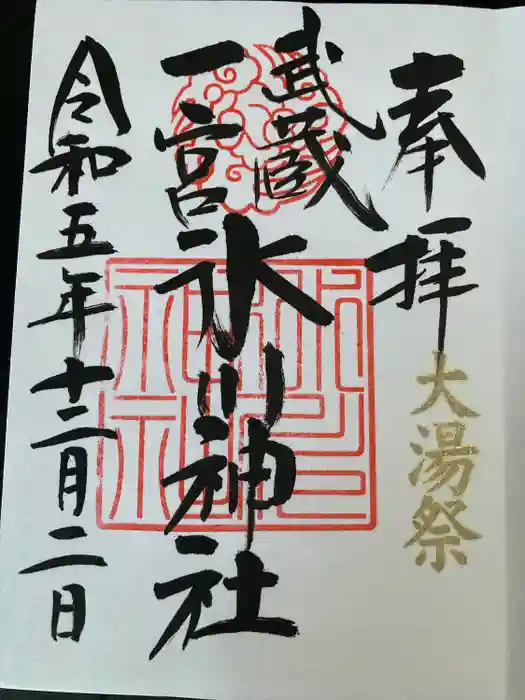 奉拝
大湯祭
武蔵
一宮
氷川神社
令和五年十二月二日
氷川
神社